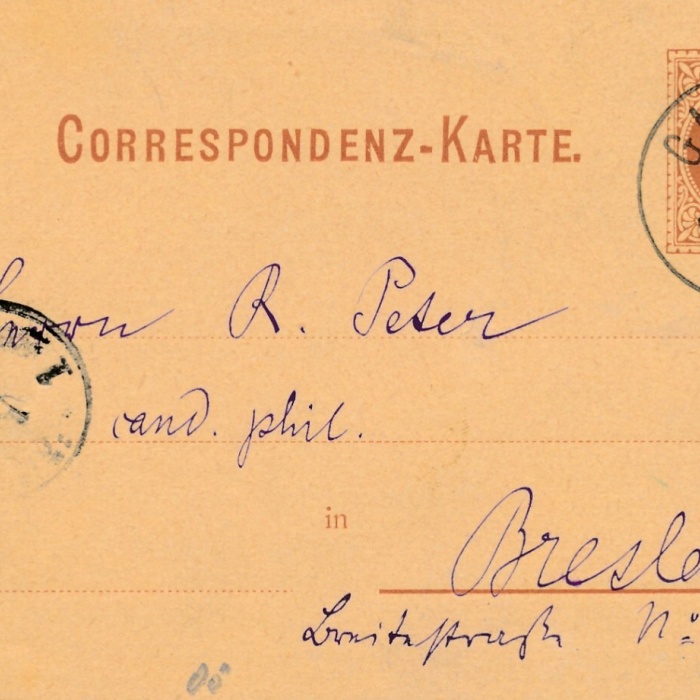 CORRESPONDENZ-KARTE.
Herrn R. Peter
cand. phil.
in
Bresla
Breitestraße No